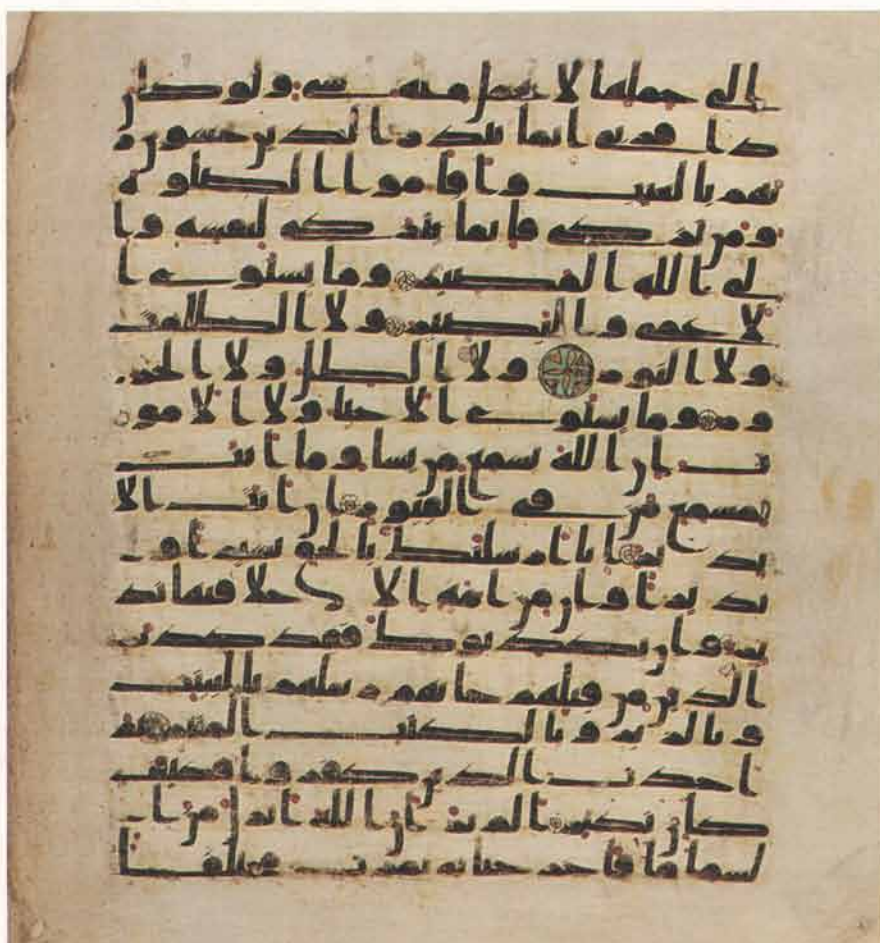 الى حملها لا يحمل منه شى ولو كان
ذا قربى انما تنذر الذين يخشون ر
بهم بالغيب واقاموا الصلوة
ومن تزكى فانما يتزكى لنفسه وا
لى الله المصير وما يستوى ا
لاعمى والبصير ولا الظلمت
ولا النور ولا الظل ولا الحر
ور وما يستوى الاحيا ولا الامو
ت ان الله يسمع من يشا وما انت
بمسمع من فى القبور ان انت الا
نذير انا ارسلنك بالحق بشيرا و
نذيرا وان من امه الا خلا فيها نذ
ير وان يكذبوك فقد كذب
الذين من قبلهم جاتهم رسلهم بالبينت
وبالزبر وبالكتب المنير ثم
اخذت الذين كفروا فكيف
كان نكير الم تر ان الله انزل من ا
لسما ما فاخرجنا به ثمرت مختلفا